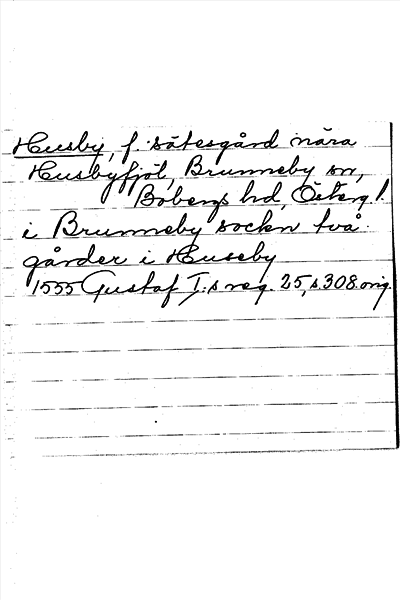 Husby, f. sätesgård nära
Husbyfjöl, Brunneby sn,
Bobergs hd, Österg l.
i Brunneby socken två
gårder i Huseby
1555 Gustaf I:s reg. 25, s 308. orig.